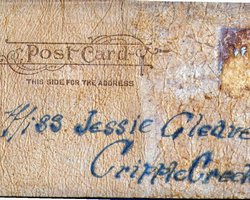 Post Card
THIS SIDE FOR THE ADDRESS
Miss Jessie Cleave
Cripple Cree